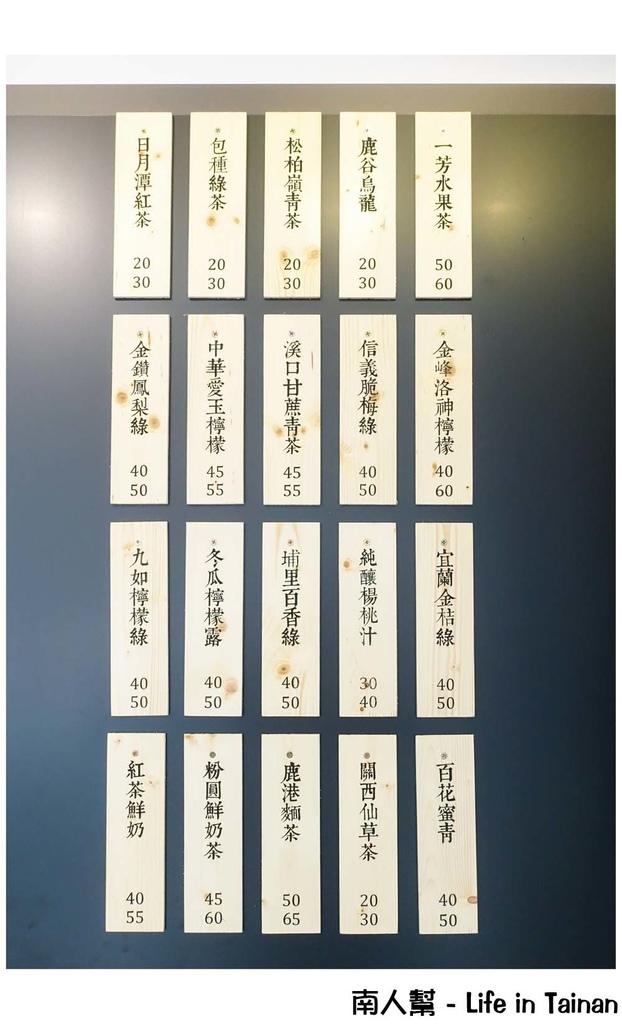 一芳水果茶
50
60
鹿谷烏龍
20
30
松柏嶺青茶
20
30
包種綠茶
20
30
日月潭紅茶
20
30
金峰洛神檸檬
40
60
信義脆梅綠
40
50
溪口甘蔗青茶
45
55
中華愛玉檸檬
45
55
金鑽鳳梨綠
40
50
宜蘭金桔綠
40
50
純釀楊桃汁
30
40
埔里百香綠
40
50
冬瓜檸檬露
40
50
九如檸檬綠
40
50
百花蜜青
40
50
關西仙草茶
20
30
鹿港麵茶
50
65
粉圓鮮奶茶
45
60
紅茶鮮奶
40
55
南人幫 - Life in Tainan